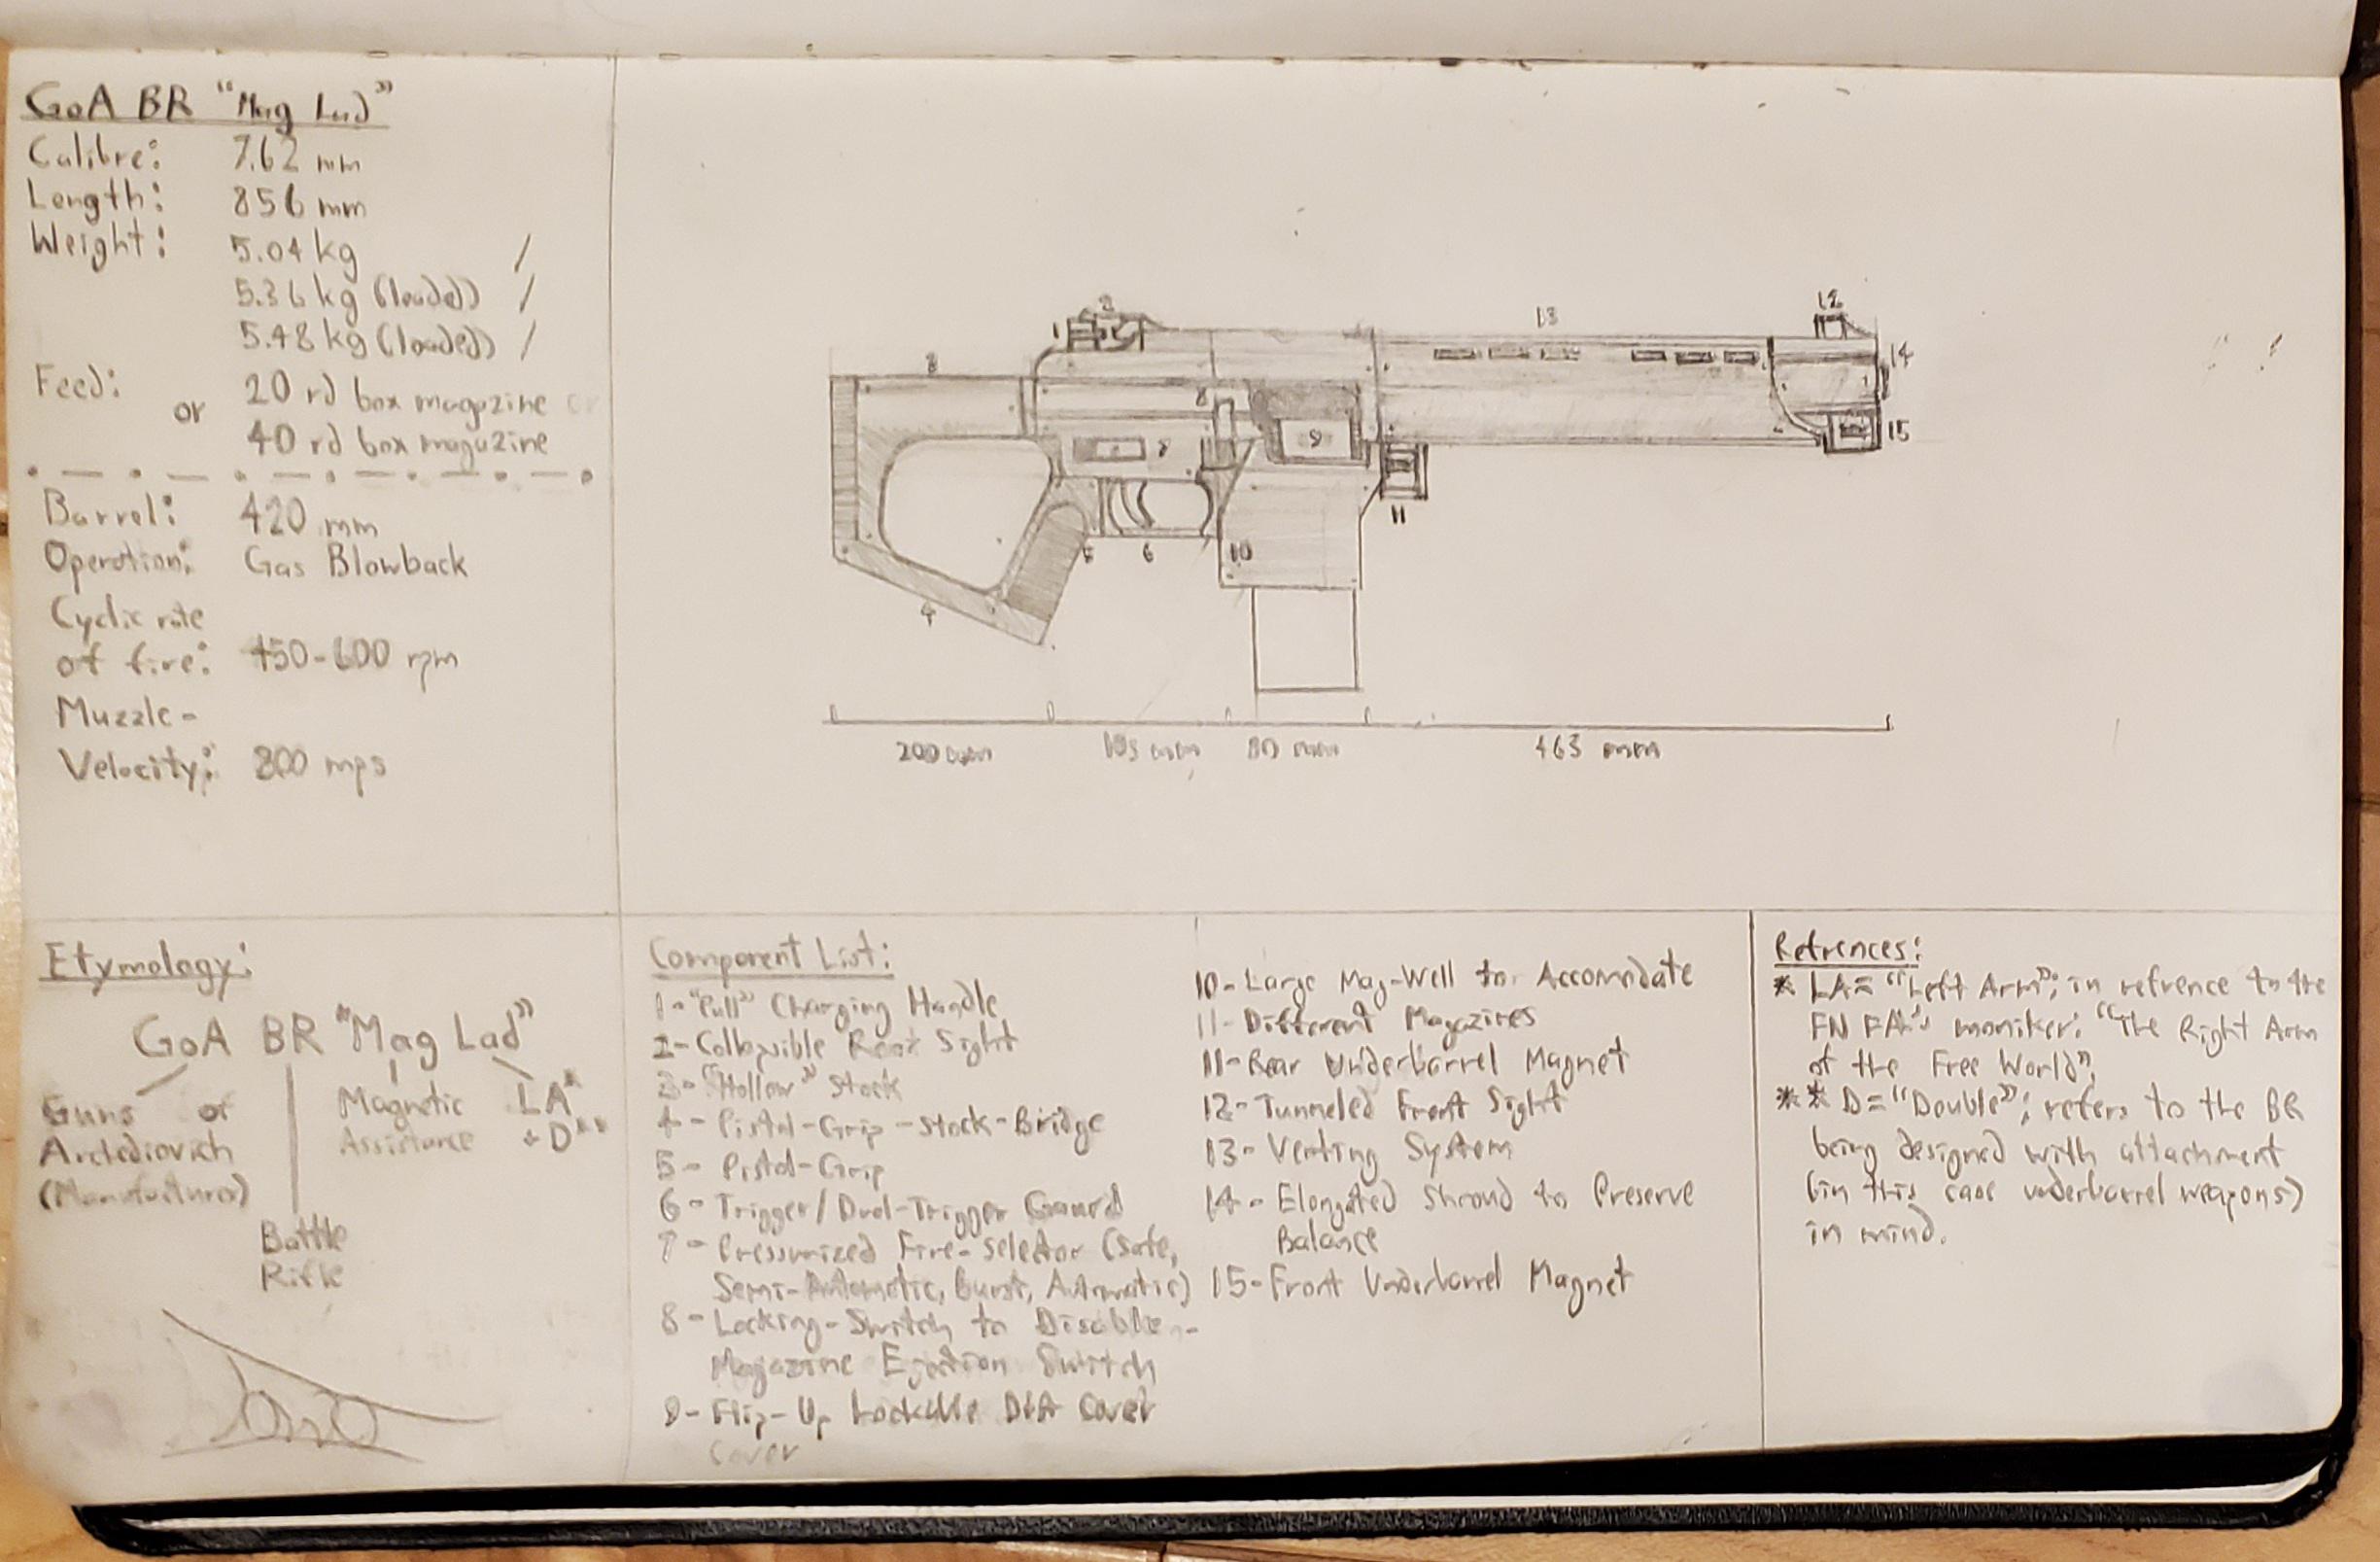 GoA BR "Mag Lad"
Calibre: 7.62 mm
Length: 856 mm
Weight: 5.04 kg /
5.36 kg (loaded) /
5.48 kg (loaded) /
Feed: 20 rd box magazine or
or 40 rd box magazine
Barrel: 420 mm
Operation: Gas Blowback
Cyclic rate
of fire: 450-600 rpm
Muzzle-
Velocity: 800 mps
1 2 3 4 5 6 7 8 9 10 11 12 13 14 15
200 mm 80 mm 463 mm
Etymology:
GoA BR "Mag Lad"
Guns of
Archdiovich
(Manufacturer)
Battle
Rifle
Magnetic
Assistance
LA*
+D**
Component List:
1-"Pull" Charging Handle
2-Collapsible Rear Sight
3-"Hollow" Stock
4-Pistol-Grip-Stock-Bridge
5-Pistol-Grip
6-Trigger/Dual-Trigger Guard
7-Pressurized Fire-Selector (Safe,
Semi-Automatic, Burst, Automatic)
8-Locking-Switch to Disable-
Magazine Ejection Switch
9-Flip-Up Lockable Cover
Cover
10-Large Mag-Well to Accomodate
11-Different Magazines
11-Rear Underbarrel Magnet
12-Tunneled Front Sight
13-Venting System
14-Elongated Shroud to Preserve
Balance
15-Front Underbarrel Magnet
Refrences:
* LA="Left Arm"; in refrence to the
FN FAL's moniker: "The Right Arm
of the Free World".
** D="Double"; refers to the BR
being designed with attachment
(in this case underbarrel weapons)
in mind.